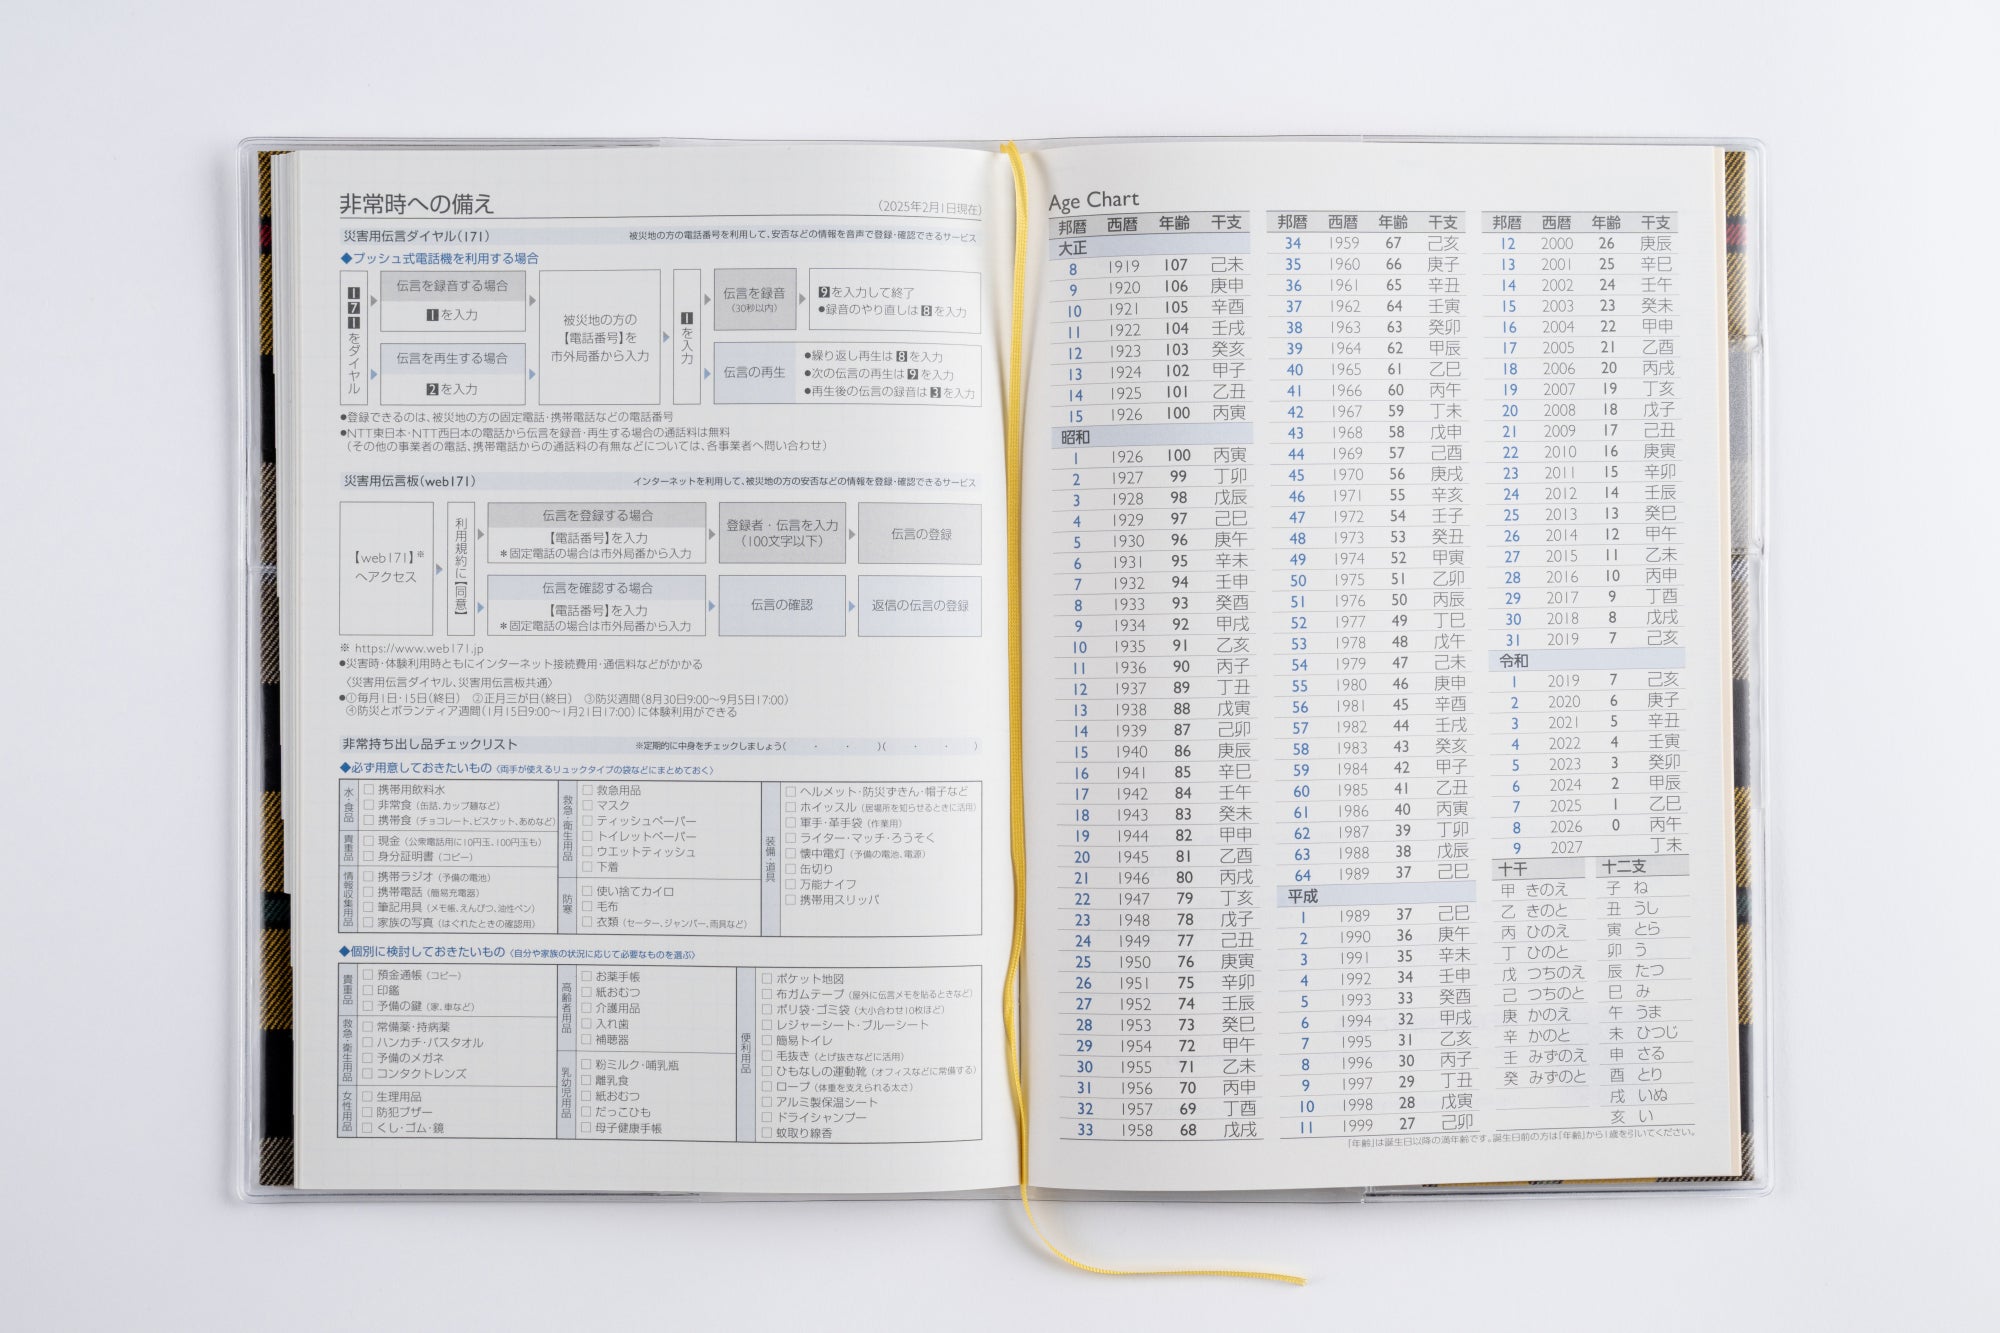 非常時への備え
(2025年2月1日現在)
災害用伝言ダイヤル(171)
被災地の方の電話番号を利用して、安否などの情報を音声で登録・確認できるサービス
◆プッシュ式電話機を利用する場合
171をダイヤル
伝言を録音する場合
1を入力
伝言を再生する場合
2を入力
被災地の方の
【電話番号】を
市外局番から入力
1を入力
伝言を録音
(30秒以内)
9を入力して終了
●録音のやり直しは8を入力
伝言の再生
●繰り返し再生は8を入力
●次の伝言の再生は9を入力
●再生後の伝言の録音は3を入力
●登録できるのは、被災地の方の固定電話・携帯電話などの電話番号
●NTT東日本・NTT西日本の電話から伝言を録音・再生する場合の通話料は無料
(その他の事業者の電話、携帯電話からの通話料の有無などについては、各事業者へ問い合わせ)
災害用伝言板(web171)
インターネットを利用して、被災地の方の安否などの情報を登録・確認できるサービス
【web171】※
へアクセス
利用規約に【同意】
伝言を登録する場合
【電話番号】を入力
＊固定電話の場合は市外局番から入力
登録者・伝言を入力
(100文字以下)
伝言の登録
伝言を確認する場合
【電話番号】を入力
＊固定電話の場合は市外局番から入力
伝言の確認
返信の伝言の登録
※ https://www.web171.jp
●災害時・体験利用時ともにインターネット接続費用・通信料などがかかる
〈災害用伝言ダイヤル、災害用伝言板共通〉
●①毎月1日・15日(終日) ②正月三が日(終日) ③防災週間(8月30日9:00〜9月5日17:00)
④防災とボランティア週間(1月15日9:00〜1月21日17:00)に体験利用ができる
非常持ち出し品チェックリスト
※定期的に中身をチェックしましょう( ・ ・ )( ・ ・ )
◆必ず用意しておきたいもの〈両手が使えるリュックタイプの袋などにまとめておく〉
水・食品
□ 携帯用飲料水
□ 非常食(缶詰、カップ麺など)
□ 携帯食(チョコレート、ビスケット、あめなど)
貴重品
□ 現金(公衆電話用に10円玉、100円玉も)
□ 身分証明書(コピー)
情報収集用品
□ 携帯ラジオ(予備の電池)
□ 携帯電話(簡易充電器)
□ 筆記用具(メモ帳、えんぴつ、油性ペン)
□ 家族の写真(はぐれたときの確認用)
救急・衛生用品
□ 救急用品
□ マスク
□ ティッシュペーパー
□ トイレットペーパー
□ ウエットティッシュ
□ 下着
防寒
□ 使い捨てカイロ
□ 毛布
□ 衣類(セーター、ジャンパー、雨具など)
装備・道具
□ ヘルメット・防災ずきん・帽子など
□ ホイッスル(居場所を知らせるときに活用)
□ 軍手・革手袋(作業用)
□ ライター・マッチ・ろうそく
□ 懐中電灯(予備の電池、電源)
□ 缶切り
□ 万能ナイフ
□ 携帯用スリッパ
◆個別に検討しておきたいもの〈自分や家族の状況に応じて必要なものを選ぶ〉
貴重品
□ 預金通帳(コピー)
□ 印鑑
□ 予備の鍵(家、車など)
救急・衛生用品
□ 常備薬・持病薬
□ ハンカチ・バスタオル
□ 予備のメガネ
□ コンタクトレンズ
女性用品
□ 生理用品
□ 防犯ブザー
□ くし・ゴム・鏡
高齢者用品
□ お薬手帳
□ 紙おむつ
□ 介護用品
□ 入れ歯
□ 補聴器
乳幼児用品
□ 粉ミルク・哺乳瓶
□ 離乳食
□ 紙おむつ
□ だっこひも
□ 母子健康手帳
便利用品
□ ポケット地図
□ 布ガムテープ(屋外に伝言メモを貼るときなど)
□ ポリ袋・ゴミ袋(大小合わせ10枚ほど)
□ レジャーシート・ブルーシート
□ 簡易トイレ
□ 毛抜き(とげ抜きなどに活用)
□ ひもなしの運動靴(オフィスなどに常備する)
□ ロープ(体重を支えられる太さ)
□ アルミ製保温シート
□ ドライシャンプー
□ 蚊取り線香
Age Chart
邦暦 西暦 年齢 干支
大正
8 1919 107 己未
9 1920 106 庚申
10 1921 105 辛酉
11 1922 104 壬戌
12 1923 103 癸亥
13 1924 102 甲子
14 1925 101 乙丑
15 1926 100 丙寅
昭和
1 1926 100 丙寅
2 1927 99 丁卯
3 1928 98 戊辰
4 1929 97 己巳
5 1930 96 庚午
6 1931 95 辛未
7 1932 94 壬申
8 1933 93 癸酉
9 1934 92 甲戌
10 1935 91 乙亥
11 1936 90 丙子
12 1937 89 丁丑
13 1938 88 戊寅
14 1939 87 己卯
15 1940 86 庚辰
16 1941 85 辛巳
17 1942 84 壬午
18 1943 83 癸未
19 1944 82 甲申
20 1945 81 乙酉
21 1946 80 丙戌
22 1947 79 丁亥
23 1948 78 戊子
24 1949 77 己丑
25 1950 76 庚寅
26 1951 75 辛卯
27 1952 74 壬辰
28 1953 73 癸巳
29 1954 72 甲午
30 1955 71 乙未
31 1956 70 丙申
32 1957 69 丁酉
33 1958 68 戊戌
邦暦 西暦 年齢 干支
34 1959 67 己亥
35 1960 66 庚子
36 1961 65 辛丑
37 1962 64 壬寅
38 1963 63 癸卯
39 1964 62 甲辰
40 1965 61 乙巳
41 1966 60 丙午
42 1967 59 丁未
43 1968 58 戊申
44 1969 57 己酉
45 1970 56 庚戌
46 1971 55 辛亥
47 1972 54 壬子
48 1973 53 癸丑
49 1974 52 甲寅
50 1975 51 乙卯
51 1976 50 丙辰
52 1977 49 丁巳
53 1978 48 戊午
54 1979 47 己未
55 1980 46 庚申
56 1981 45 辛酉
57 1982 44 壬戌
58 1983 43 癸亥
59 1984 42 甲子
60 1985 41 乙丑
61 1986 40 丙寅
62 1987 39 丁卯
63 1988 38 戊辰
64 1989 37 己巳
平成
1 1989 37 己巳
2 1990 36 庚午
3 1991 35 辛未
4 1992 34 壬申
5 1993 33 癸酉
6 1994 32 甲戌
7 1995 31 乙亥
8 1996 30 丙子
9 1997 29 丁丑
10 1998 28 戊寅
11 1999 27 己卯
邦暦 西暦 年齢 干支
12 2000 26 庚辰
13 2001 25 辛巳
14 2002 24 壬午
15 2003 23 癸未
16 2004 22 甲申
17 2005 21 乙酉
18 2006 20 丙戌
19 2007 19 丁亥
20 2008 18 戊子
21 2009 17 己丑
22 2010 16 庚寅
23 2011 15 辛卯
24 2012 14 壬辰
25 2013 13 癸巳
26 2014 12 甲午
27 2015 11 乙未
28 2016 10 丙申
29 2017 9 丁酉
30 2018 8 戊戌
31 2019 7 己亥
令和
1 2019 7 己亥
2 2020 6 庚子
3 2021 5 辛丑
4 2022 4 壬寅
5 2023 3 癸卯
6 2024 2 甲辰
7 2025 1 乙巳
8 2026 0 丙午
9 2027 丁未
十干
甲 きのえ
乙 きのと
丙 ひのえ
丁 ひのと
戊 つちのえ
己 つちのと
庚 かのえ
辛 かのと
壬 みずのえ
癸 みずのと
十二支
子 ね
丑 うし
寅 とら
卯 う
辰 たつ
巳 み
午 うま
未 ひつじ
申 さる
酉 とり
戌 いぬ
亥 い
「年齢」は誕生日以降の満年齢です。誕生日前の方は「年齢」から1歳を引いてください。